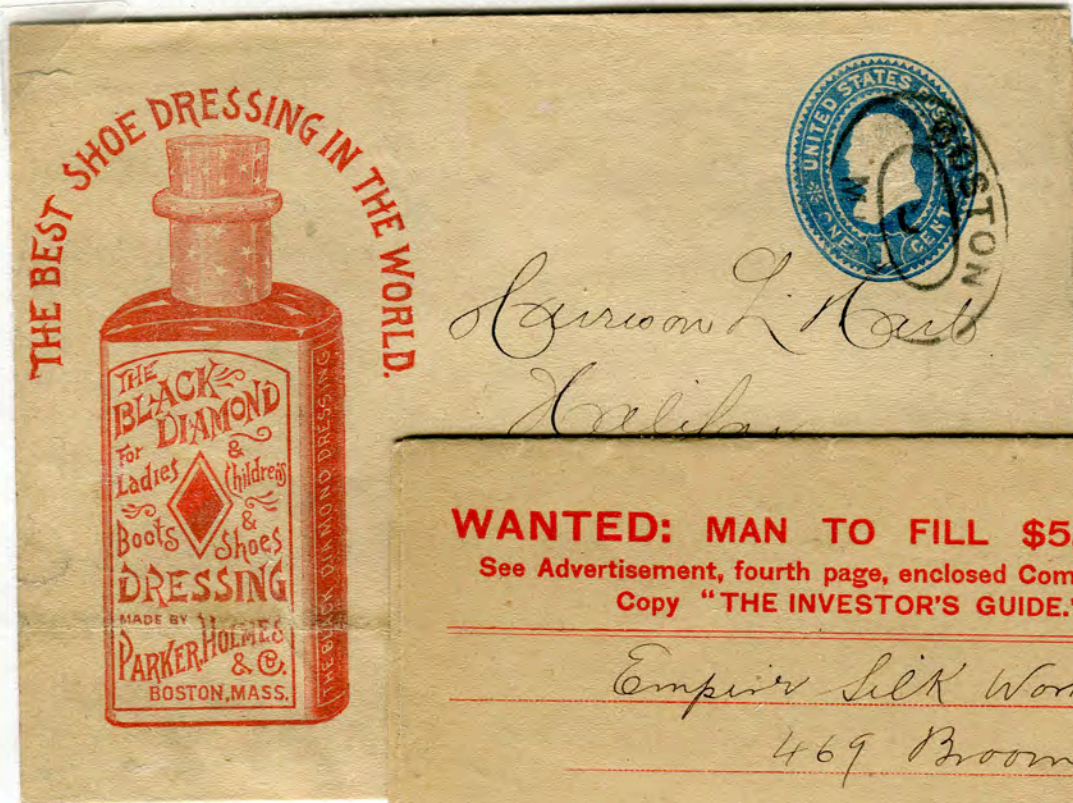 THE BEST SHOE DRESSING IN THE WORLD.
THE
BLACK
DIAMOND
For
Ladies
&
Children's
Boots
&
Shoes
DRESSING
MADE BY
PARKER, HOLMES
& Co.
BOSTON, MASS.
THE BLACK DIAMOND DRESSING
UNITED STATES POSTAGE
ONE CENT
1
BOSTON
M.
Harrison L Hart
Halifax
WANTED: MAN TO FILL $5
See Advertisement, fourth page, enclosed Com
Copy "THE INVESTOR'S GUIDE."
Empire Silk Wor
469 Broom